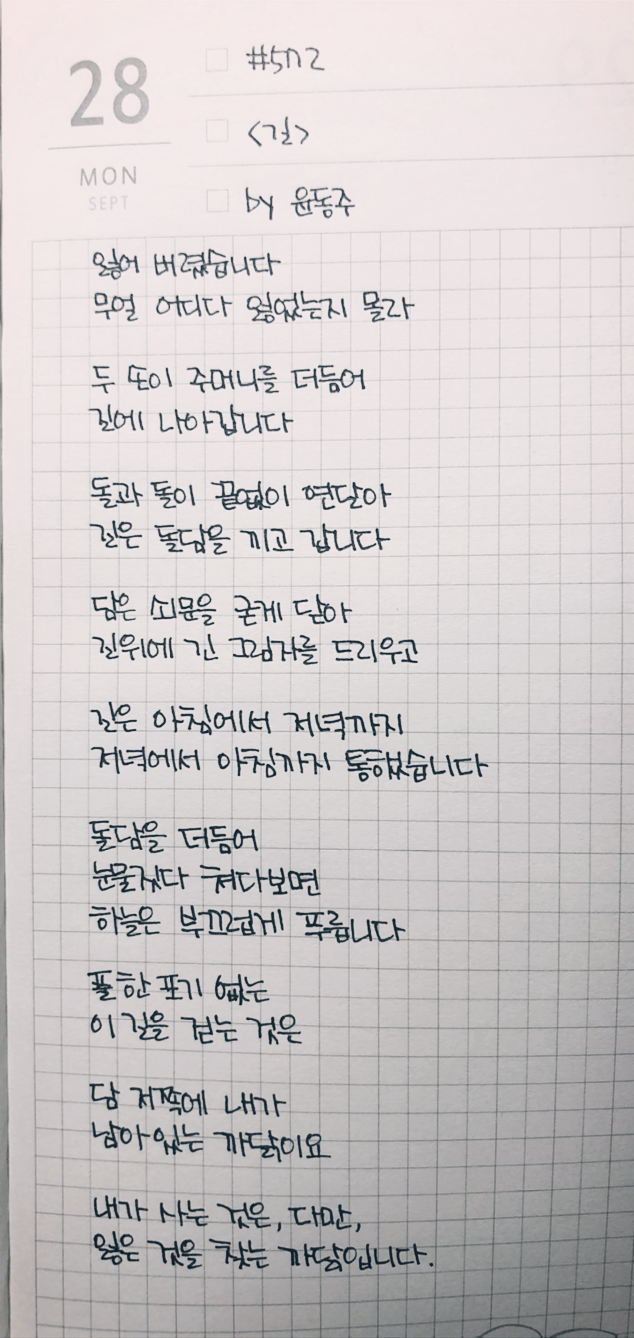 28
MON
SEPT
#5n2
<길>
by 윤동주
잃어 버렸습니다
무얼 어디다 잃었는지 몰라
두 손이 주머니를 더듬어
길에 나아갑니다
돌과 돌이 끝없이 연달아
길은 돌담을 끼고 갑니다
담은 쇠문을 굳게 닫아
길위에 긴 그림자를 드리우고
길은 아침에서 저녁까지
저녁에서 아침까지 통했습니다
돌담을 더듬어
눈물짓다 쳐다보면
하늘은 부끄럽게 푸릅니다
풀 한 포기 없는
이 길을 걷는 것은
담 저쪽에 내가
남아 있는 까닭이요
내가 사는 것은, 다만,
잃은 것을 찾는 까닭입니다.